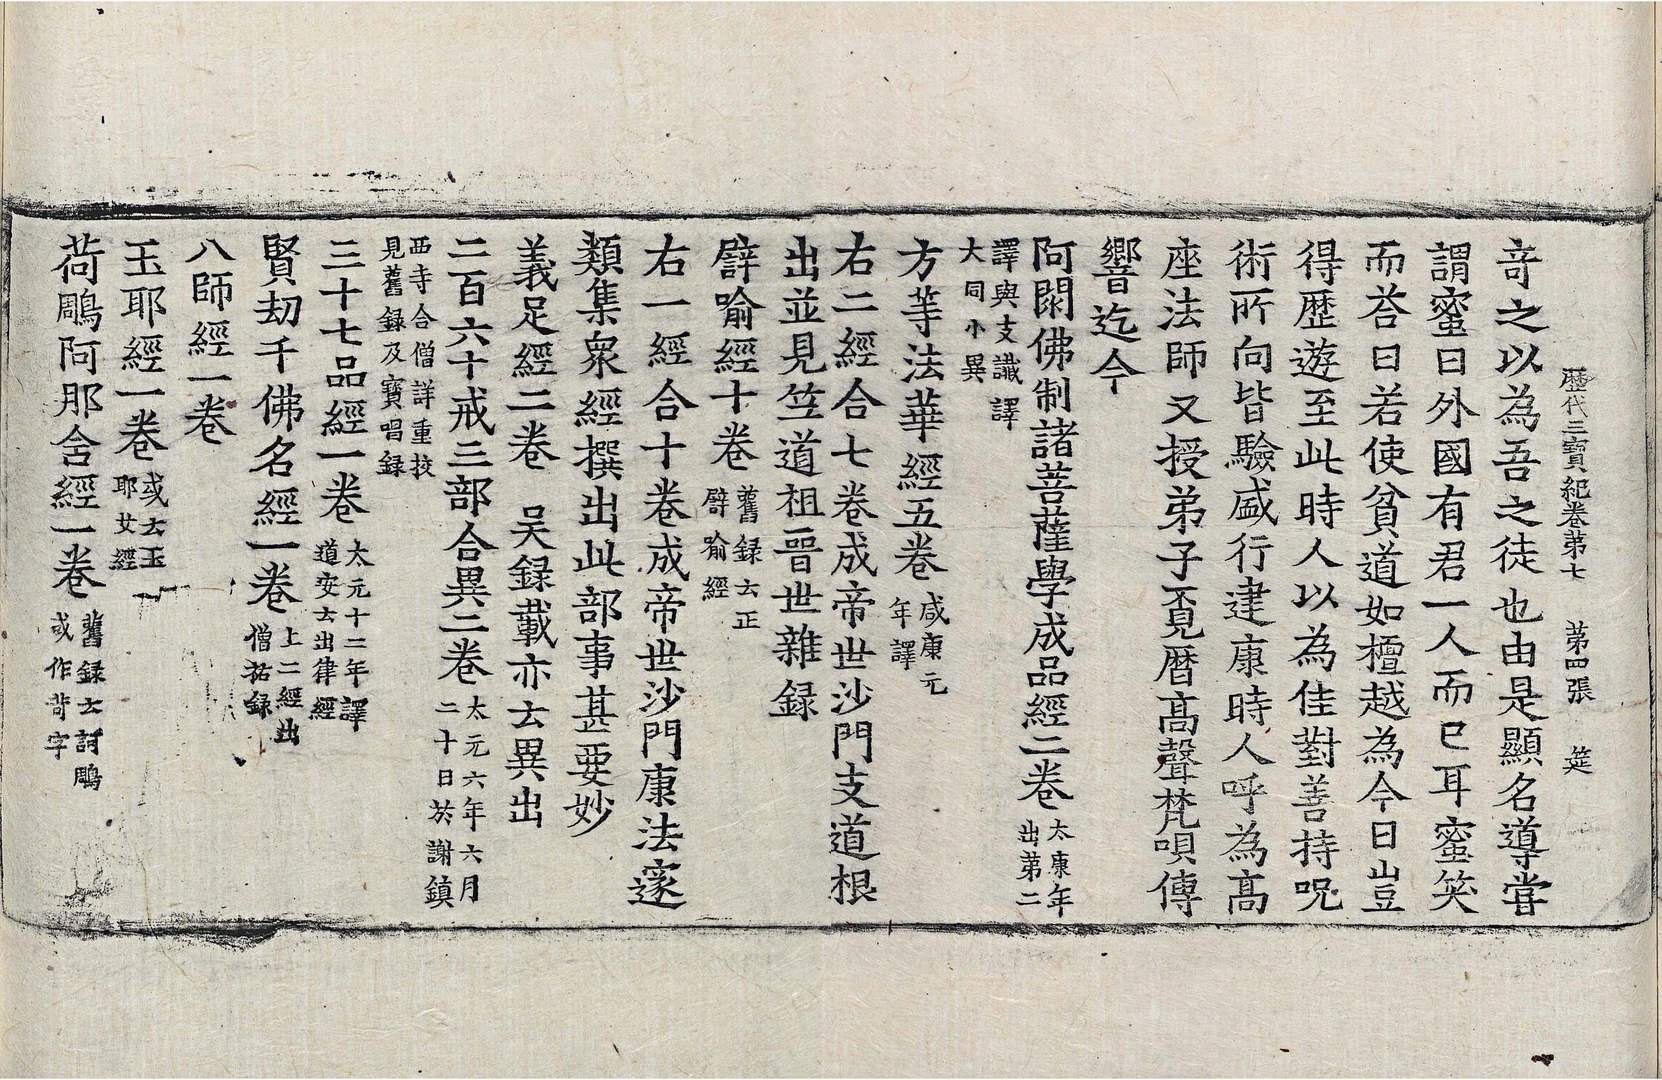 歷代三寶紀卷苐七 苐四張 筵
竒之以為吾之徒也由是顯名導甞
謂蜜曰外國有君一人而已耳蜜笑
而荅曰若使貧道如檀越為今日豈
得歷遊至此時人以為佳對善持呪
術所向皆驗盛行建康時人呼為髙
座法師又授弟子覓曆髙聲梵唄傳
響迄今
阿閦佛制諸菩薩學成品經二卷 太康年
出苐二
譯與支讖譯
大同小異
方等法華經五卷 咸康元
年譯
右二經合七卷成帝世沙門支道根
出並見竺道祖晉世雜録
譬喻經十卷 舊録云正
譬喻經
右一經合十卷成帝世沙門康法邃
類集衆經撰出此部事甚要妙
義足經二卷 吴録載亦云異出
二百六十戒三部合異二卷 太元六年六月
二十日於謝鎮
西寺合僧詳重挍
見舊録及寶唱録
三十七品經一卷 太元十二年譯
道安云出律經
賢劫千佛名經一卷 上二經出
僧祐録
八師經一卷
玉耶經一卷 或云玉
耶女經
荷鵰阿那含經一卷 舊録云訶鵰
或作苛字